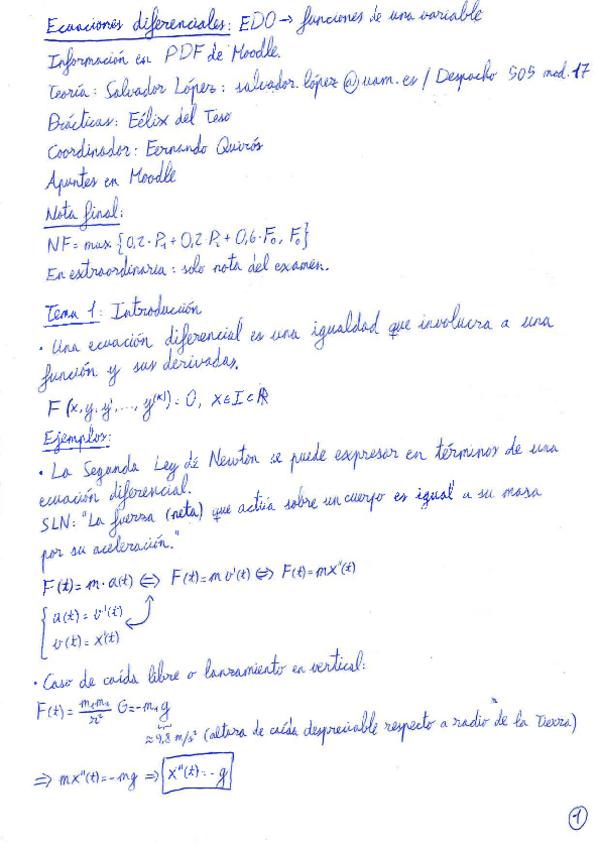 Ecuaciones diferenciales: EDO → funciones de una variable
Información en PDF de Moodle.
Teoría: Salvador López: salvador.lópez@uam.es / Despacho 505 mod. 17
Prácticas: Félix del Teso
Coordinador: Fernando Quirós
Apuntes en Moodle
Nota final:
NF = max {0,2·P₁ + 0,2·P₂ + 0,6·F₀, F₀}
En extraordinaria: solo nota del examen.
Tema 1: Introducción
· Una ecuación diferencial es una igualdad que involucra a una
función y sus derivadas.
F(x, y, y', ..., y^(k)) = 0, x ∈ I ⊂ ℝ
Ejemplos:
· La Segunda Ley de Newton se puede expresar en términos de una
ecuación diferencial.
SLN: "La fuerza (neta) que actúa sobre un cuerpo es igual a su masa
por su aceleración."
F(t) = m·a(t) ⇔ F(t) = m v'(t) ⇔ F(t) = m x''(t)
{ a(t) = v'(t)
v(t) = x'(t)
· Caso de caída libre o lanzamiento en vertical:
F(t) = m₁m₂/r² G = -m₁ g
≈ 9,8 m/s² (altura de caída despreciable respecto a radio de la Tierra)
⇒ mx''(t) = -mg ⇒ x''(t) = -g
1